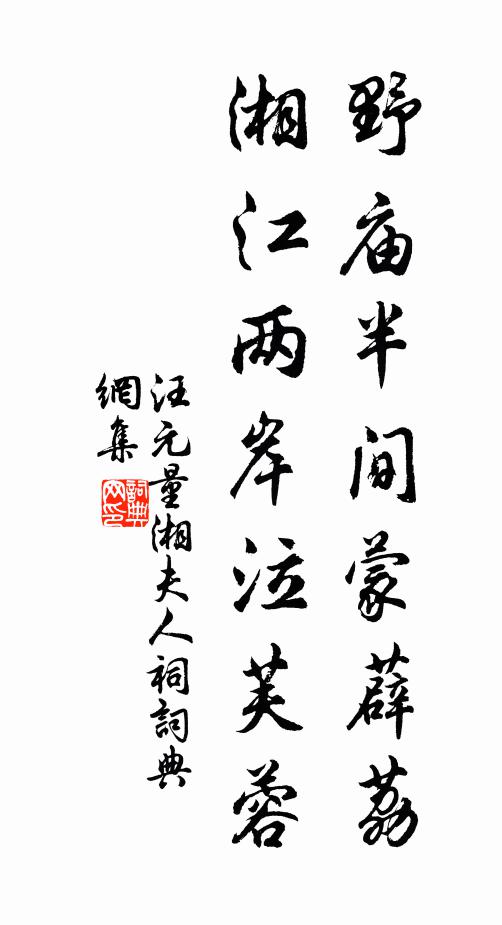 野庙半间蒙薜荔
湘江两岸泣芙蓉
汪元量湘夫人祠詞典
網集
詞典
网印